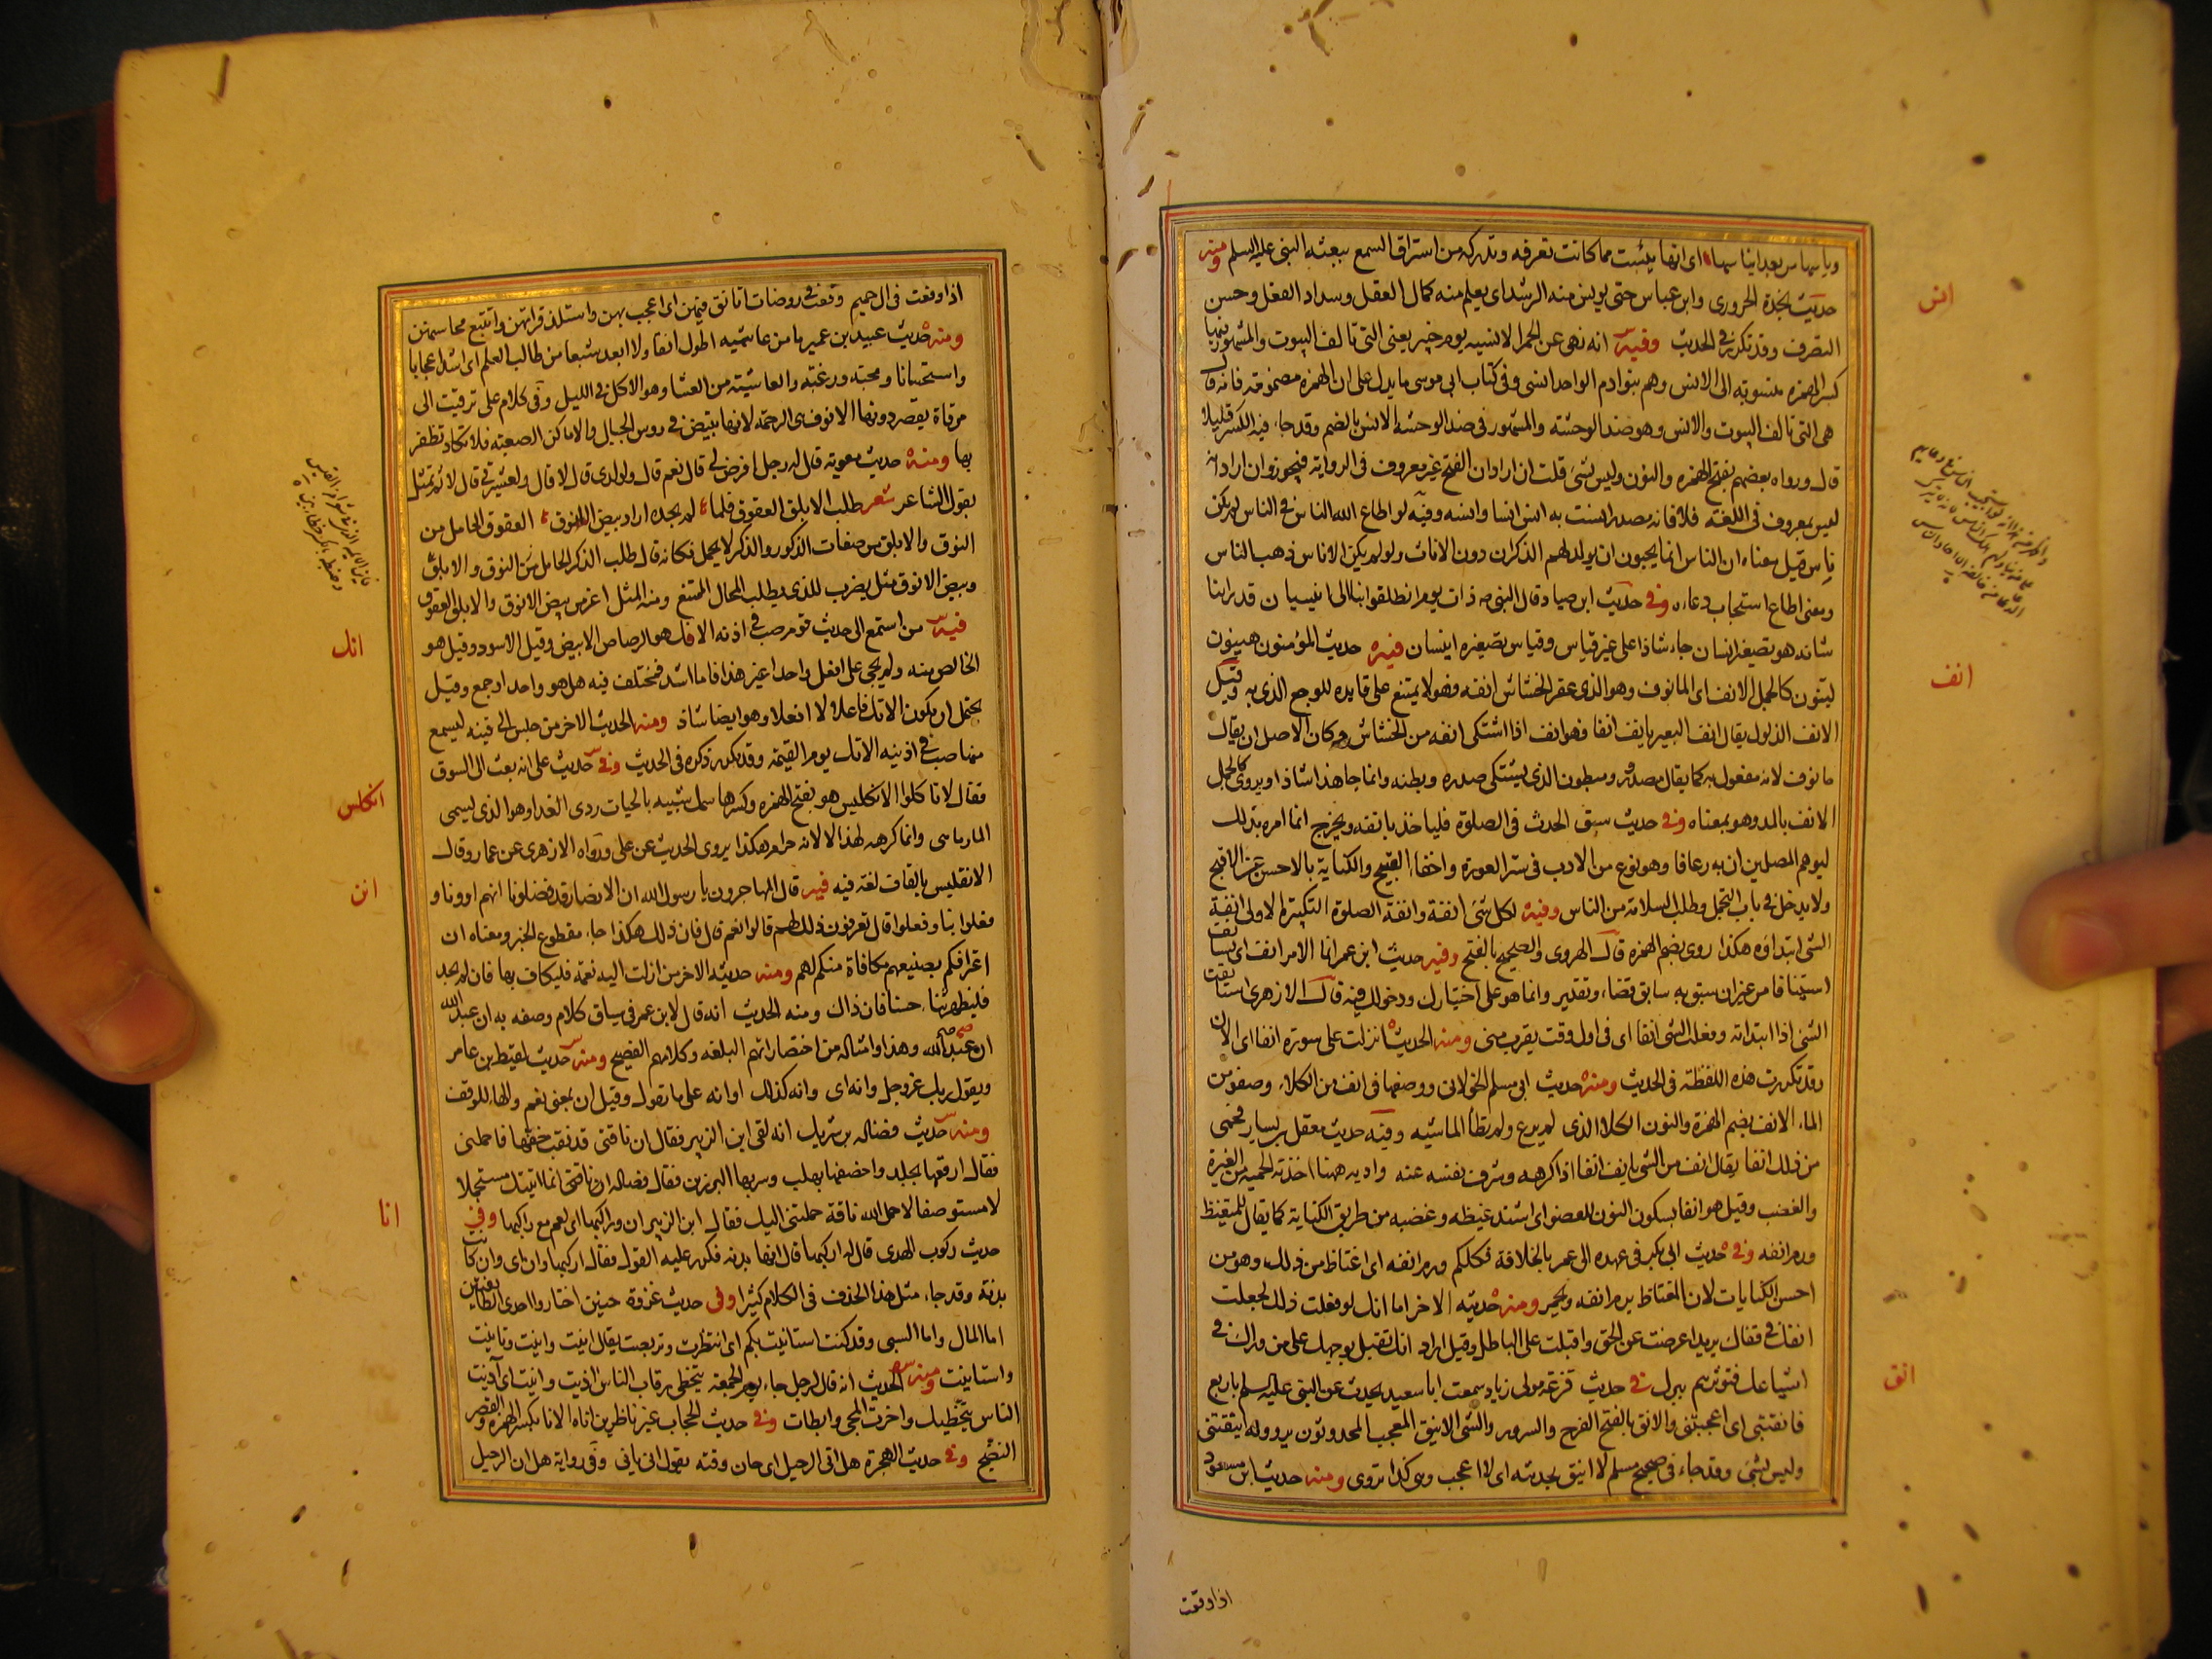 وياسها من بعد ايناسها اى انها يئست مما كانت تعرفه وتدركه من استراق السمع ببعثه النبى عليه السلم ومنه
حديث نجدة الحرورى وابن عباس حتى يونس منه الرشد اى يعلم منه كمال العقل وسداد الفعل وحسن
انس
التصرف وقد تكرر فى الحديث وفيه انه نهى عن الحمر الانسيه يوم خيبر يعنى التى تالف البيوت والمشهور فيها
كسر الهمزه منسوبه الى الانس وهم بنو ادم الواحد انسى وفى كتاب ابى موسى ما يدل على ان الهمزه مضمومه فانه قال
هى التى تالف البيوت والانس وهو ضد الوحشه والمشهور فى ضد الوحشه الانس بالضم وقد جاء فيه الكسر قليلا
قال ورواه بعضهم بفتح الهمزه والنون وليس بشئ قلت ان اراد ان الفتح غير معروف فى الروايه فيجوز وان اراد انه
ليس بمعروف فى اللغه فلا فانه مصدر انست به انس انسا وانسه وفيه لو اطاع الله الناس فى الناس لم يكن
ناس قيل معناه ان الناس انما يحبون ان يولد لهم الذكران دون الاناث ولو لم يكن الاناس ذهب الناس
ومعنى اطاع استجاب دعاءه وفى حديث ابن صياد قال النبى ص ذات يوم انطلقوا بنا الى انيسيان قد رابنا
شانه هو تصغير انسان جاء شاذا على غير قياس وقياس تصغيره انيسان فيه حديث المؤمنون هينون
انف
لينون كالجمل الانف اى المانوف وهو الذى عقر الخشاش انفه فهو لا يمتنع على قايده للوجع الذى به وقيل
الانف الذلول يقال انف البعير يانف انفا فهو انف اذا اشتكى انفه من الخشاش وكان الاصل ان يقال
مانوف لانه مفعول به كما يقال مصدور ومبطون الذى يشتكى صدره وبطنه وانما جا هذا شاذا ويروى كالجمل
الانف بالمد وهو بمعناه وفى حديث سبق الحدث فى الصلوة فلياخذ بانفه ويخرج انما امره بذلك
ليوهم المصلين ان به رعافا وهو نوع من الادب فى ستر العورة واخفاء القبيح والكناية بالاحسن عن الاقبح
ولا يدخل فى باب التجمل وطلب السلامة من الناس وفيه لكل شئ انفة وانفة الصلوة التكبيرة الاولى انفة
الشى ابتداؤه هكذا روى بضم الهمزه قال الهروى والصحيح بالفتح وفيه حديث ابن عمر انما الامر انف اى يستانف
استينافا من غير ان سبق به سابق قضاء وتقدير وانما هو على اختيارك ودخولك فيه قال الازهرى استانفت
الشى اذا ابتداته وفعلت الشى انفا اى فى اول وقت يقرب منى ومنه الحديث انزلت على سورة انفا اى الان
وقد تكررت هذه اللفظة فى الحديث ومنه حديث ابى مسلم الخولانى ووضعها فى انف من الكلاء وصفو من
الماء الانف بضم الهمزة والنون الكلا الذى لم يرع ولم تطاه الماشيه وفيه حديث معقل بن يسار فحمى
من ذلك انفا يقال انف من الشى يانف انفا اذا كرهه وشرف نفسه عنه واراد به ههنا اخذته الحمية من الغيرة
والغضب وقيل هو انفا بسكون النون للعضو اى اشتد غيظه وغضبه من طريق الكناية كما يقال للمتغيظ
ورم انفه وفى حديث ابى بكر فى عهده الى عمر بالخلافة فكلكم ورم انفه اى اغتاظ من ذلك وهو من
احسن الكنايات لان المغتاظ يرم انفه ويحمر ومنه حديثه الاخر اما انك لو فعلت ذلك لجعلت
انفك فى قفاك يريد اعرضت عن الحق واقبلت على الباطل وقيل اراد انك تقبل بوجهك على من وراك فى
اشياعك فتوثرهم ببرك فى حديث قزعة مولى زياد سمعت ابا سعيد يحدث عن النبى عليه السلم باربع
انق
فانقننى اى اعجبتنى والانق بالفتح الفرح والسرور والشى الانيق المعجب المحدثون يرووله اينقننى
وليس بشئ وقد جاء فى صحيح مسلم لا اينق بحديثه اى لا اعجب وهى كذا تروى ومنه حديث ابن مسعود
اذا وقعت
اذا وقعت فى ال حميم وقعت فى روضات اتانق فيهن اى اعجب بهن واستلذ قراتهن واتتبع محاسنهن
ومنه حديث عبيد بن عمير ما من عاشيه اطول انقا ولا ابعد شبعا من طالب العلم اى اشد اعجابا
واستحسانا ومحبته ورغبته والعاشيته من العشا وهو الاكل فى الليل وفى كلام على ترقيت الى
مرقاة يقصر دونها الانوف هى الرخمة لانها تبيض فى روس الجبال والاماكن الصعبه فلا تكاد تظفر
بها ومنه حديث معويه قال له رجل افرض لى قال نعم قال ولولدى قال لا قال ولعشيرتى قال لا ثم تمثل
بقول الشاعر شعر طلب الابلق العقوق فلما لم يجده اراد بيض الانوق العقوق الحامل من
النوق والابلق من صفات الذكور والذكر لا يحمل فكانه قال طلب الذكر الحامل من النوق والابلق
وبيض الانوق مثل يضرب للذى يطلب المحال الممتنع ومنه المثل اعز من بيض الانوق والابلق العقوق
فيه من استمع الى حديث قوم صب فى اذنه الانك هو الرصاص الابيض وقيل الاسود وقيل هو
انك
الخالص منه ولم يجى على افعل واحدا غير هذا فاما اشد فمختلف فيه هل هو واحد او جمع وقيل
يحتمل ان يكون الانك فاعلا لا افعلا وهو ايضا شاذ ومنه الحديث الاخر من جلس الى قينه ليسمع
منها صب فى اذنيه الانك يوم القيمة وقد تكرر ذكره فى الحديث وفى حديث على انه بعث الى السوق
انكلس
فقال لا تاكلوا الانكليس هو بفتح الهمزه وكسرها سمك شبيه بالحيات ردى الغدا وهو الذى يسمى
المارماهى وانما كرهه لهذا لا لانه حرام هكذا يروى الحديث عن على ورواه الازهرى عن عمار وقال
الانقليس بالقاف لغة فيه فيه قال المهاجرون يا رسول الله ان الانصار قد فضلونا انهم اوونا و
انن
فعلوا بنا وفعلوا قال تعرفون ذلك لهم قالوا نعم قال فان ذلك هكذا جاء مقطوع الخبر ومعناه ان
اعترافكم بصنيعهم مكافاة منكم لهم ومنه حديثه الاخر من ازلت اليه نعمة فليكاف بها فان لم يجد
فليظهر ثنا حسنا فان ذاك ومنه الحديث انه قال لابن عمر فى سياق كلام وصفه به ان عبد الله
ان عبد الله وهذا وامثاله من اختصاراتهم البلغة وكلامهم الفصيح ومنه حديث لقيط بن عامر
ويقول ربك عز وجل وانه اى وانه كذلك او انه على ما تقول وقيل ان بمعنى نعم والهاء للوقف
ومنه حديث فضاله بن شريك انه لقى ابن الزبير فقال ان ناقتى قد نقب خفها فاحملنى
فقال ارقعها بجلد واخصفها بهلب وسر بها البردين فقال فضاله ان ناقتى انما اتيتك مستحملا
لا مستوصفا لا حمل الله ناقة حملتنى اليك فقال ابن الزبير ان وراكبها اى نعم مع راكبها وفى
انا
حديث ركوب الهدى قال له اركبها قال انها بدنه فكرر عليه القول فقال اركبها وان اى وان كانت
بدنة وقد جاء مثل هذا الحذف فى الكلام كثيرا وفى حديث غزوة حنين اختاروا احدى الطائفتين
اما المال واما السبى وقد كنت استانيت بكم اى انتظرت وتربصت يقال انيت وانيت وتانيت
واستانيت ومنه الحديث انه قال لرجل جاء يوم الجمعه يتخطى رقاب الناس اذيت وانيت اى آذيت
الناس بتخطيك واخرت المجى وابطات وفى حديث الحجاب غير ناظرين اناه الانا بكسر الهمزه والقصر
النضج وفى حديث الهجرة هل انى الرحيل اى حان وقته يقول انى يانى وفى رواية هل ان الرحيل